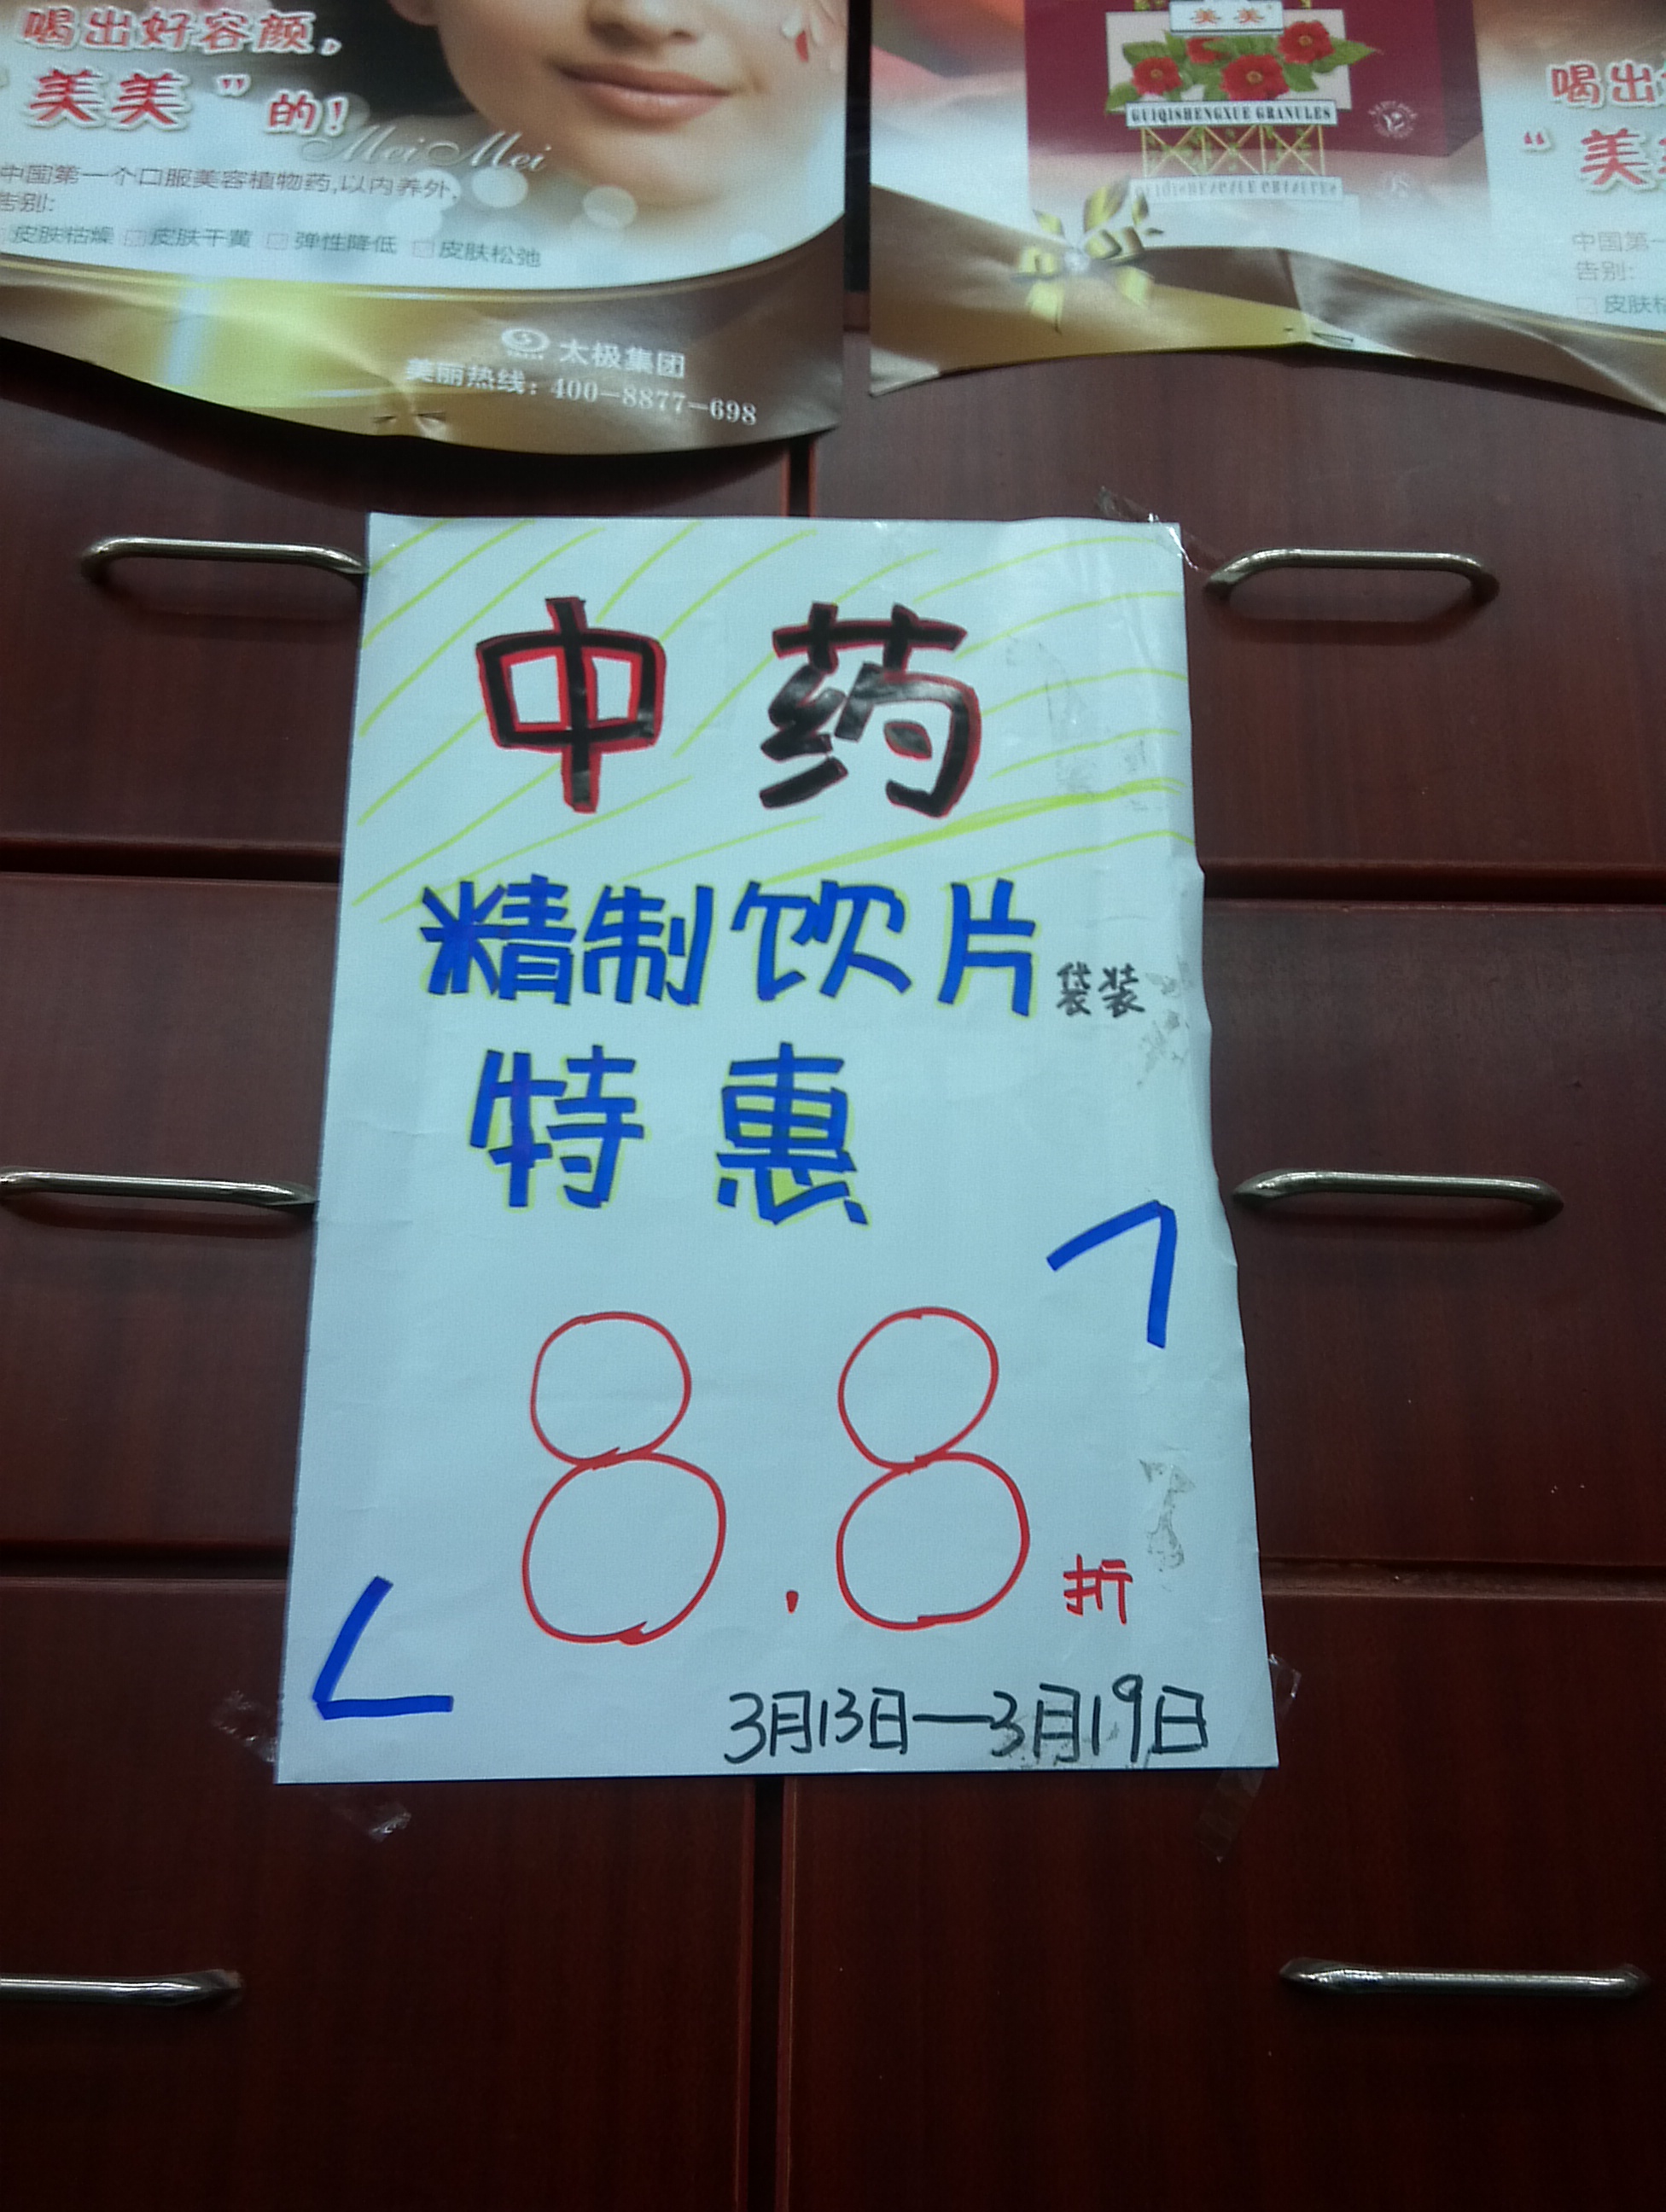 喝出好容颜,
"美美"的!
Mei Mei
中国第一个口服美容植物药,以内养外,
告别:
皮肤枯燥 皮肤干黄 弹性降低 皮肤松弛
太极集团
美丽热线: 400-8877-698
美美
GUIQISHENGXUE GRANULES
喝出
"美
中国第一
告别:
皮肤枯
中药
精制饮片 袋装
特惠
8.8折
3月13日—3月19日